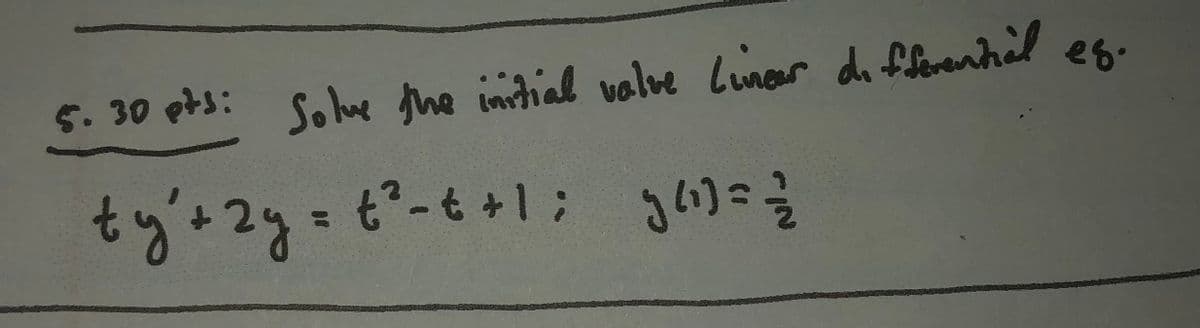 5. 30 pts: Solve the initial valve Linear differential eq.
ty'+2y = t²-t+1; y(1) = 1/2